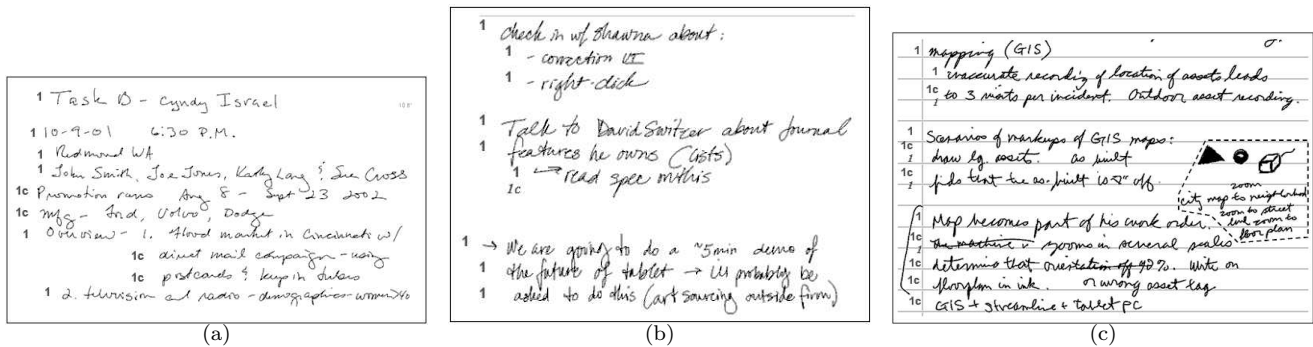 1 Task B - Cyndy Israel
1 10-9-01 6:30 P.M.
1 Redmond WA
1 John Smith, Joe Jones, Kathy Lang & Sue Cross
1c Promotion runs Aug 8 - Sept 23 2002
1c Mfg - Ford, Volvo, Dodge
1 Overview - 1. flood market in Cincinnati w/
1c direct mail campaign - using
1c postcards & keys in tubes
1 2. television ad radio - demographics - women > 40
(a)
1 check in w/ Shawna about:
1 - correction UI
1 - right-click
1 Talk to David Switzer about Journal
1 features he owns (lists)
1 → read spec on this
1c
1 → We are going to do a ~5min demo of
1 the future of tablet → UI probably be
1 asked to do this (art sourcing outside firm)
(b)
1 mapping (GIS)
1 inaccurate recording of location of assets leads
1c to 3 visits per incident. Outdoor asset recording.
1
1 Scenarios of markups of GIS maps:
1c draw lg. assets. as built
1
1c finds that the as-built is off
1
zoom
city map to neighborhood
zoom to street
link zoom to
floor plan
1 Map becomes part of his work order.
1c the machine is zooms in several scales
1c determine that orientation off 42%. Write on
1c floorplan in ink. or wrong asset tag
1c GIS + streamline + tablet PC
(c)